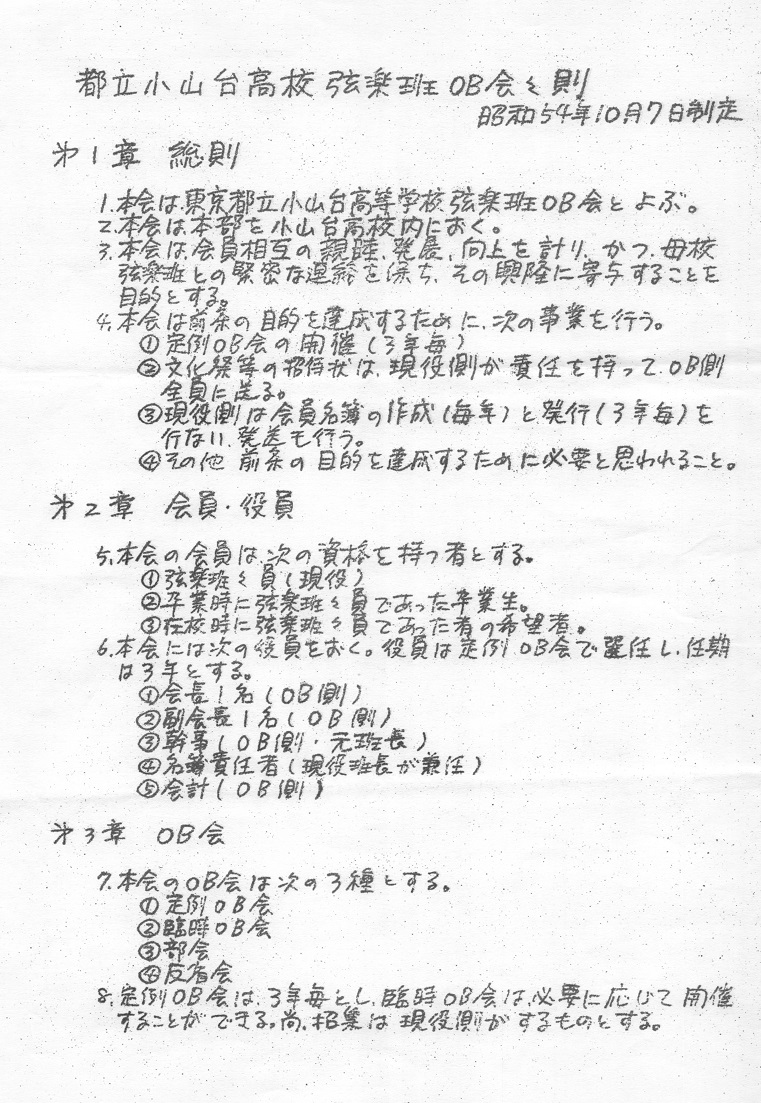 都立小山台高校弦楽班OB会々則
昭和54年10月7日制定
第1章 総則
1.本会は東京都立小山台高等学校弦楽班OB会とよぶ。
2.本会は本部を小山台高校内におく。
3.本会は、会員相互の親睦、発展、向上を計り、かつ、母校
弦楽班との緊密な連絡を保ち、その興隆に寄与することを
目的とする。
4.本会は前条の目的を達成するために、次の事業を行う。
①定例OB会の開催(3年毎)
②文化祭等の招待状は、現役側が責任を持って、OB側
全員に送る。
③現役側は会員名簿の作成(毎年)と発行(3年毎)を
行ない、発送も行う。
④その他 前条の目的を達成するために必要と思われること。
第2章 会員・役員
5.本会の会員は、次の資格を持つ者とする。
①弦楽班々員(現役)
②卒業時に弦楽班々員であった卒業生。
③在校時に弦楽班々員であった者の希望者。
6.本会には次の役員をおく。役員は定例OB会で選任し、任期
は3年とする。
①会長1名(OB側)
②副会長1名(OB側)
③幹事(OB側・元班長)
④名簿責任者(現役班長が兼任)
⑤会計(OB側)
第3章 OB会
7.本会のOB会は次の3種とする。
①定例OB会
②臨時OB会
③部会
④反省会
8.定例OB会は、3年毎とし、臨時OB会は、必要に応じて開催
することができる。尚、招集は現役側がするものとする。